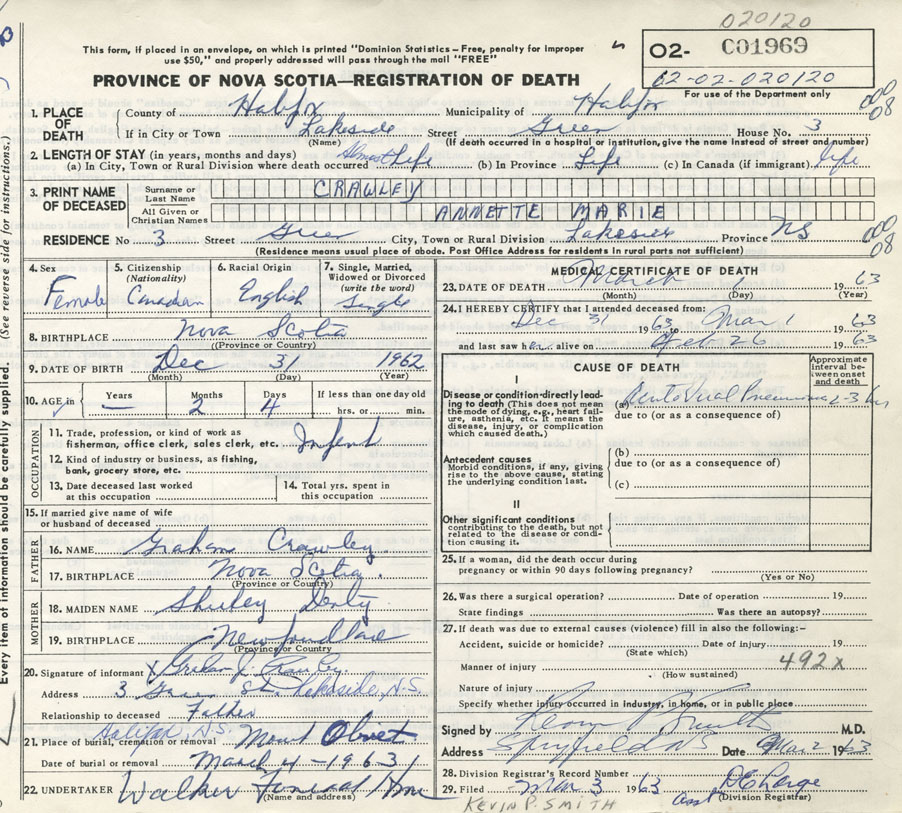 020120
This form, if placed in an envelope, on which is printed "Dominion Statistics – Free, penalty for improper
use $50," and properly addressed will pass through the mail "FREE"
02- C01969
62-02-020120
For use of the Department only
PROVINCE OF NOVA SCOTIA—REGISTRATION OF DEATH
1. PLACE OF DEATH County of Halifax Municipality of Halifax
If in City or Town Lakeside Street Green House No. 3
(Name) (If death occurred in a hospital or institution, give the name instead of street and number)
08
2. LENGTH OF STAY (in years, months and days)
(a) In City, Town or Rural Division where death occurred Almost Life (b) In Province Life (c) In Canada (if immigrant) life
3. PRINT NAME OF DECEASED Surname or Last Name CRAWLEY
All Given or Christian Names ANNETTE MARIE
RESIDENCE No 3 Street Green City, Town or Rural Division Lakeside Province NS
08
(Residence means usual place of abode. Post Office Address for residents in rural parts not sufficient)
4. Sex Female
5. Citizenship (Nationality) Canadian
6. Racial Origin English
7. Single, Married, Widowed or Divorced (write the word) Single
8. BIRTHPLACE Nova Scotia
(Province or Country)
9. DATE OF BIRTH Dec 31 1962
(Month) (Day) (Year)
10. AGE in Years — Months 2 Days 4 If less than one day old
hrs. or min.
OCCUPATION
11. Trade, profession, or kind of work as
fisherman, office clerk, sales clerk, etc. Infant
12. Kind of industry or business, as fishing,
bank, grocery store, etc.
13. Date deceased last worked
at this occupation
14. Total yrs. spent in
this occupation
15. If married give name of wife
or husband of deceased
FATHER
16. NAME Graham Crawley
17. BIRTHPLACE Nova Scotia.
(Province or Country)
MOTHER
18. MAIDEN NAME Shirley
19. BIRTHPLACE Newfoundland
(Province or Country)
20. Signature of informant X Graham J. Crawley
Address 3 Green St. Lakeside, N.S.
Relationship to deceased Father
Halifax, N.S.
21. Place of burial, cremation or removal Mount Olivet
Date of burial or removal March 4 - 1963
22. UNDERTAKER Walker Funeral Home
(Name and address)
MEDICAL CERTIFICATE OF DEATH
23. DATE OF DEATH March 1 1963
(Month) (Day) (Year)
24. I HEREBY CERTIFY that I attended deceased from:
Dec 31 1963 to Mar 1 1963
and last saw her alive on Feb 26 1963
CAUSE OF DEATH
Approximate interval between onset and death
I
Disease or condition directly leading to death (This does not mean
the mode of dying, e.g., heart failure, asthenia, etc. It means the
disease, injury, or complication
which caused death.)
(a) Acute Viral Pneumonia 2-3 hrs
due to (or as a consequence of)
Antecedent causes
Morbid conditions, if any, giving
rise to the above cause, stating
the underlying condition last.
(b)
due to (or as a consequence of)
(c)
II
Other significant conditions
contributing to the death, but not
related to the disease or condition causing it.
25. If a woman, did the death occur during
pregnancy or within 90 days following pregnancy?
(Yes or No)
26. Was there a surgical operation? Date of operation 19
State findings Was there an autopsy?
27. If death was due to external causes (violence) fill in also the following:-
Accident, suicide or homicide? Date of injury 19
(State which)
492x
Manner of injury
(How sustained)
Nature of injury
Specify whether injury occurred in industry, in home, or in public place
Signed by Kevin P Smith M.D.
Address Spryfield NS Date Mar 2 1963
28. Division Registrar's Record Number
29. Filed Mar 3 1963
(Division Registrar)
KEVIN P. SMITH
(See reverse side for instructions.)
Every item of information should be carefully supplied.